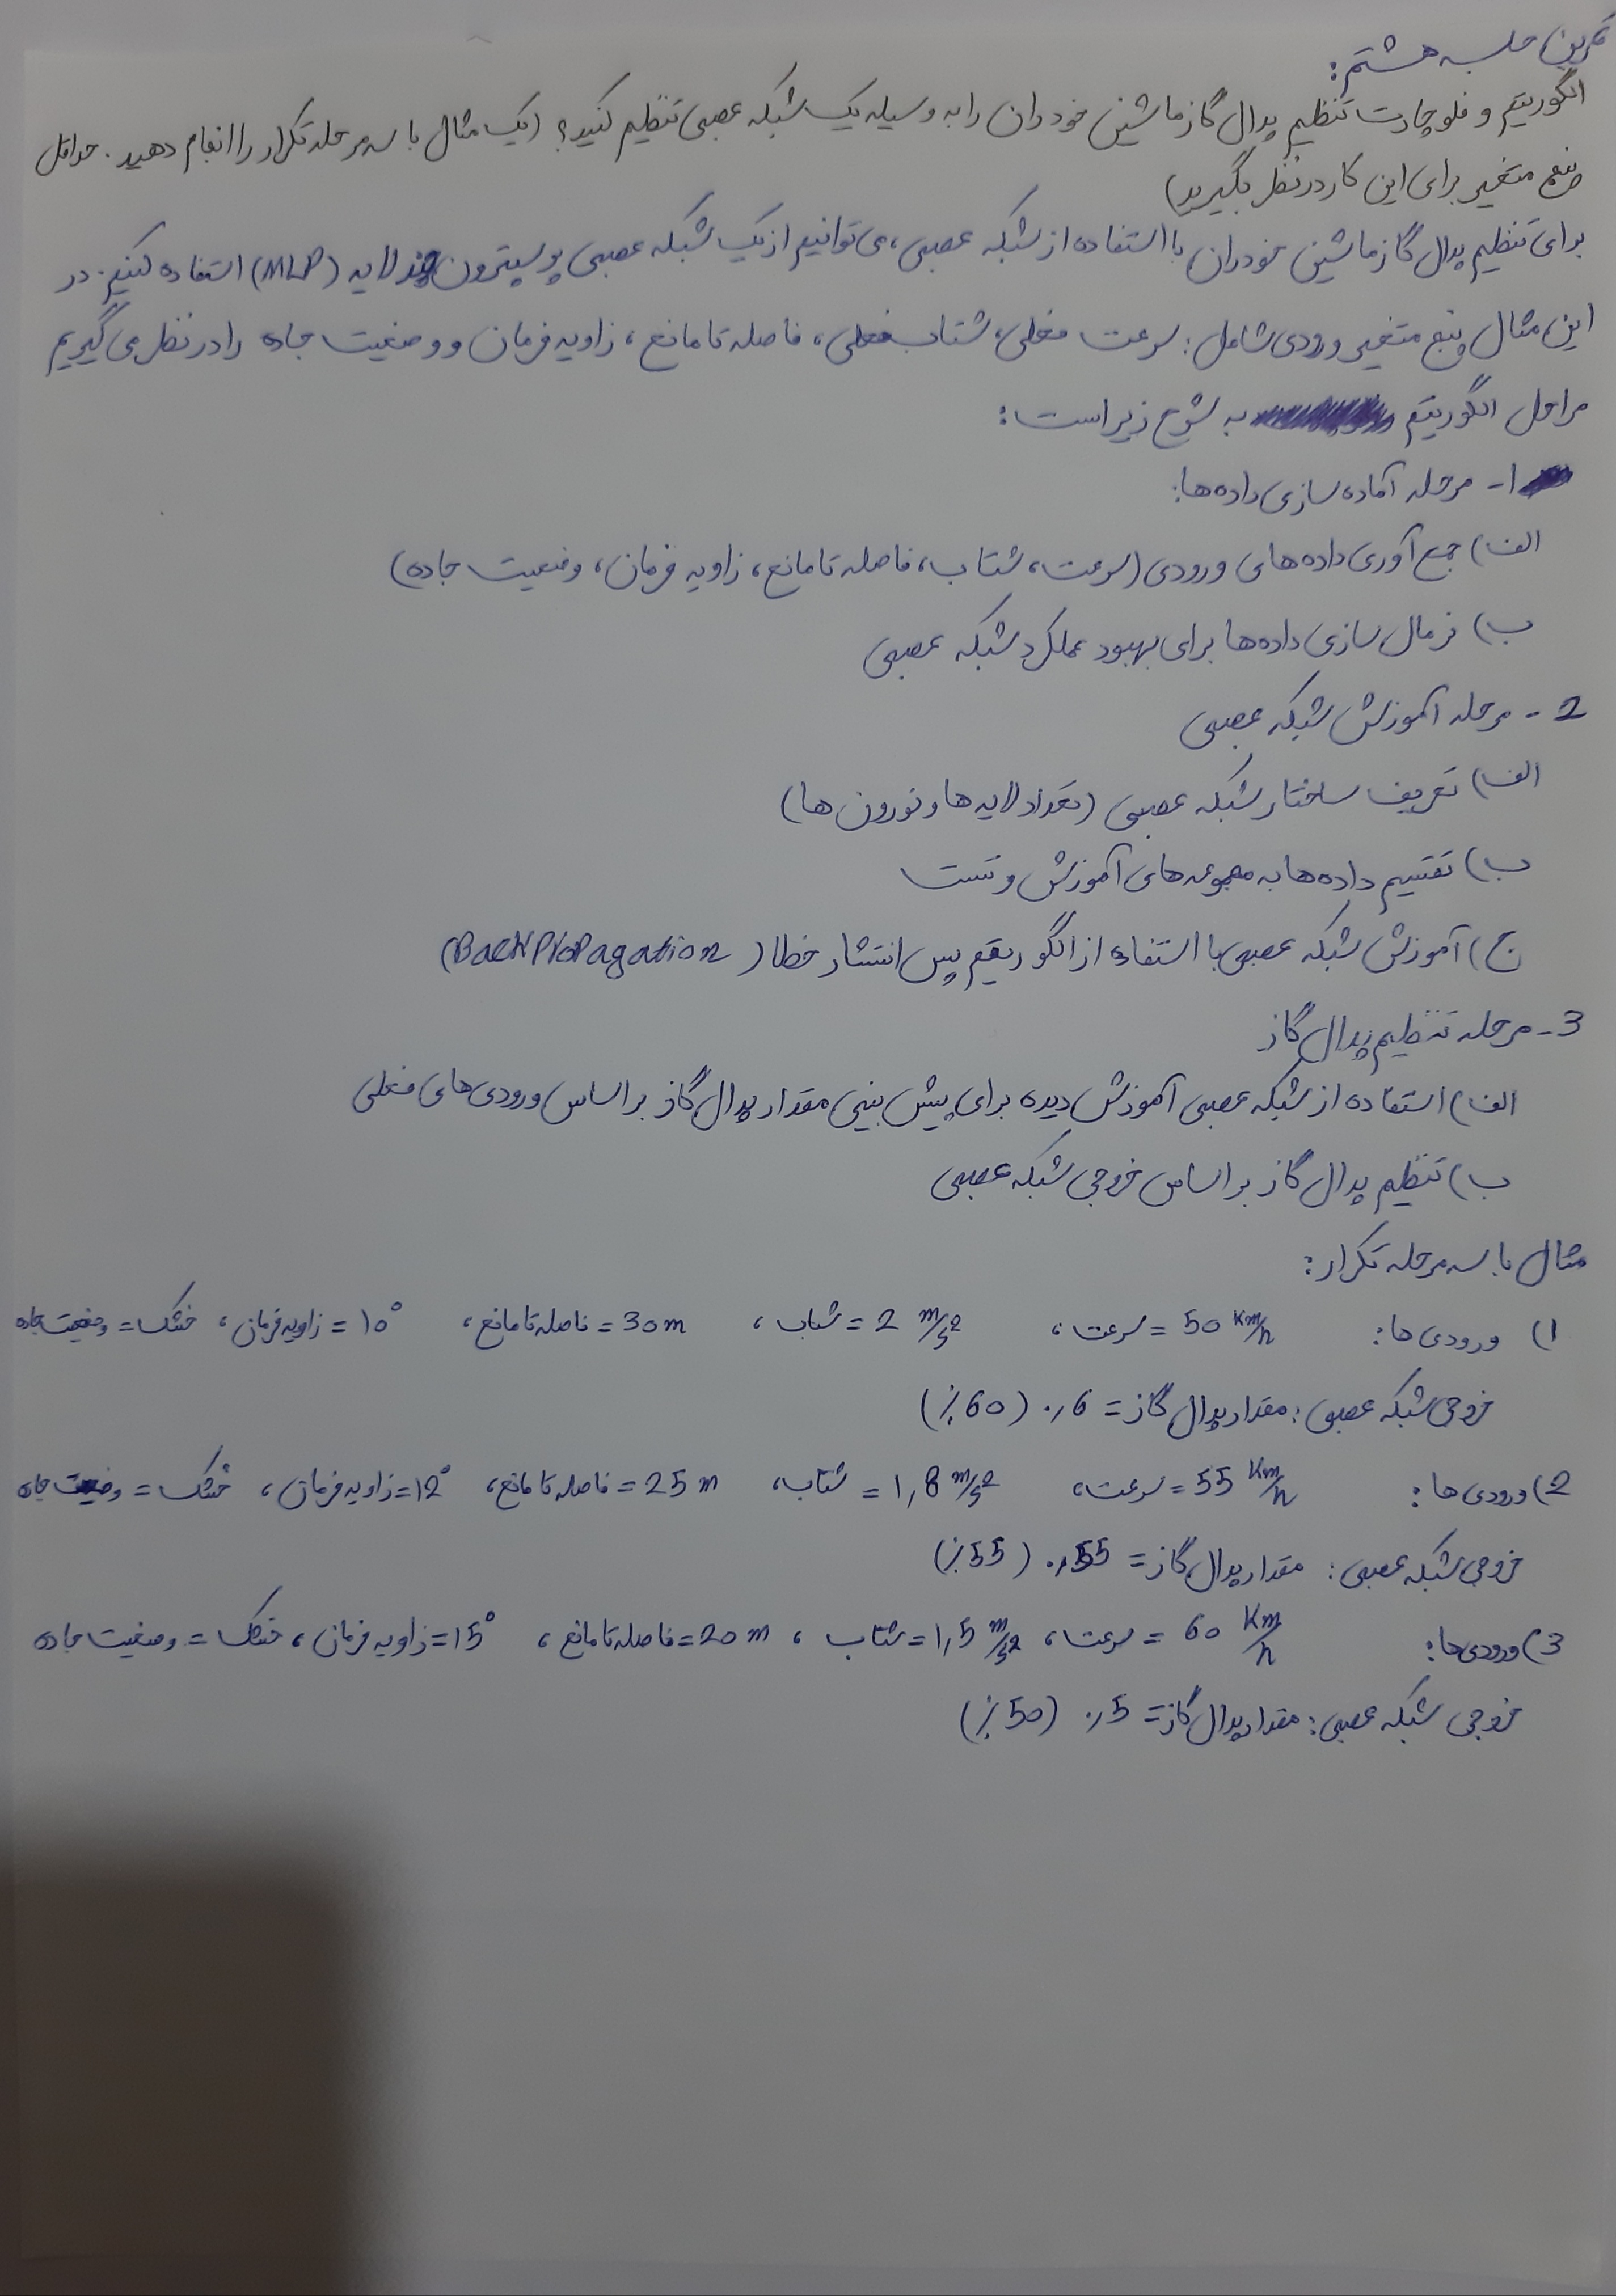 تمرین جلسه هشتم:
الگوریتم و فلوچارت تنظیم پدال گاز ماشین خودران را به وسیله یک شبکه عصبی تنظیم کنید؟ (یک مثال با سه مرحله تکرار را انجام دهید. حداقل
پنج متغیر برای این کار در نظر بگیرید)
برای تنظیم پدال گاز ماشین خودران با استفاده از شبکه عصبی، می‌توانیم از یک شبکه عصبی پرسپترون چند لایه (MLP) استفاده کنیم. در
این مثال پنج متغیر ورودی شامل: سرعت فعلی، شتاب فعلی، فاصله تا مانع، زاویه فرمان و وضعیت جاده را در نظر می‌گیریم
مراحل الگوریتم به شرح زیر است:
1- مرحله آماده سازی داده‌ها:
الف) جمع آوری داده‌های ورودی (سرعت، شتاب، فاصله تا مانع، زاویه فرمان، وضعیت جاده)
ب) نرمال سازی داده‌ها برای بهبود عملکرد شبکه عصبی
2- مرحله آموزش شبکه عصبی
الف) تعریف ساختار شبکه عصبی (تعداد لایه‌ها و نورون‌ها)
ب) تقسیم داده‌ها به مجموعه‌های آموزش و تست
ج) آموزش شبکه عصبی با استفاده از الگوریتم پس انتشار خطا (BackPropagation)
3- مرحله تنظیم پدال گاز
الف) استفاده از شبکه عصبی آموزش دیده برای پیش بینی مقدار پدال گاز بر اساس ورودی‌های فعلی
ب) تنظیم پدال گاز بر اساس خروجی شبکه عصبی
مثال با سه مرحله تکرار:
1) ورودی‌ها: 50 Km/h = سرعت، 2 m/s2 = شتاب، 30m = فاصله تا مانع، 10° = زاویه فرمان، خشک = وضعیت جاده
خروجی شبکه عصبی: مقدار پدال گاز = 0,6 (60٪)
2) ورودی‌ها: 55 Km/h = سرعت، 1,8 m/s2 = شتاب، 25m = فاصله تا مانع، 12° = زاویه فرمان، خشک = وضعیت جاده
خروجی شبکه عصبی: مقدار پدال گاز = 0,55 (55٪)
3) ورودی‌ها: 60 Km/h = سرعت، 1,5 m/s2 = شتاب، 20m = فاصله تا مانع، 15° = زاویه فرمان، خشک = وضعیت جاده
خروجی شبکه عصبی: مقدار پدال گاز = 0,5 (50٪)